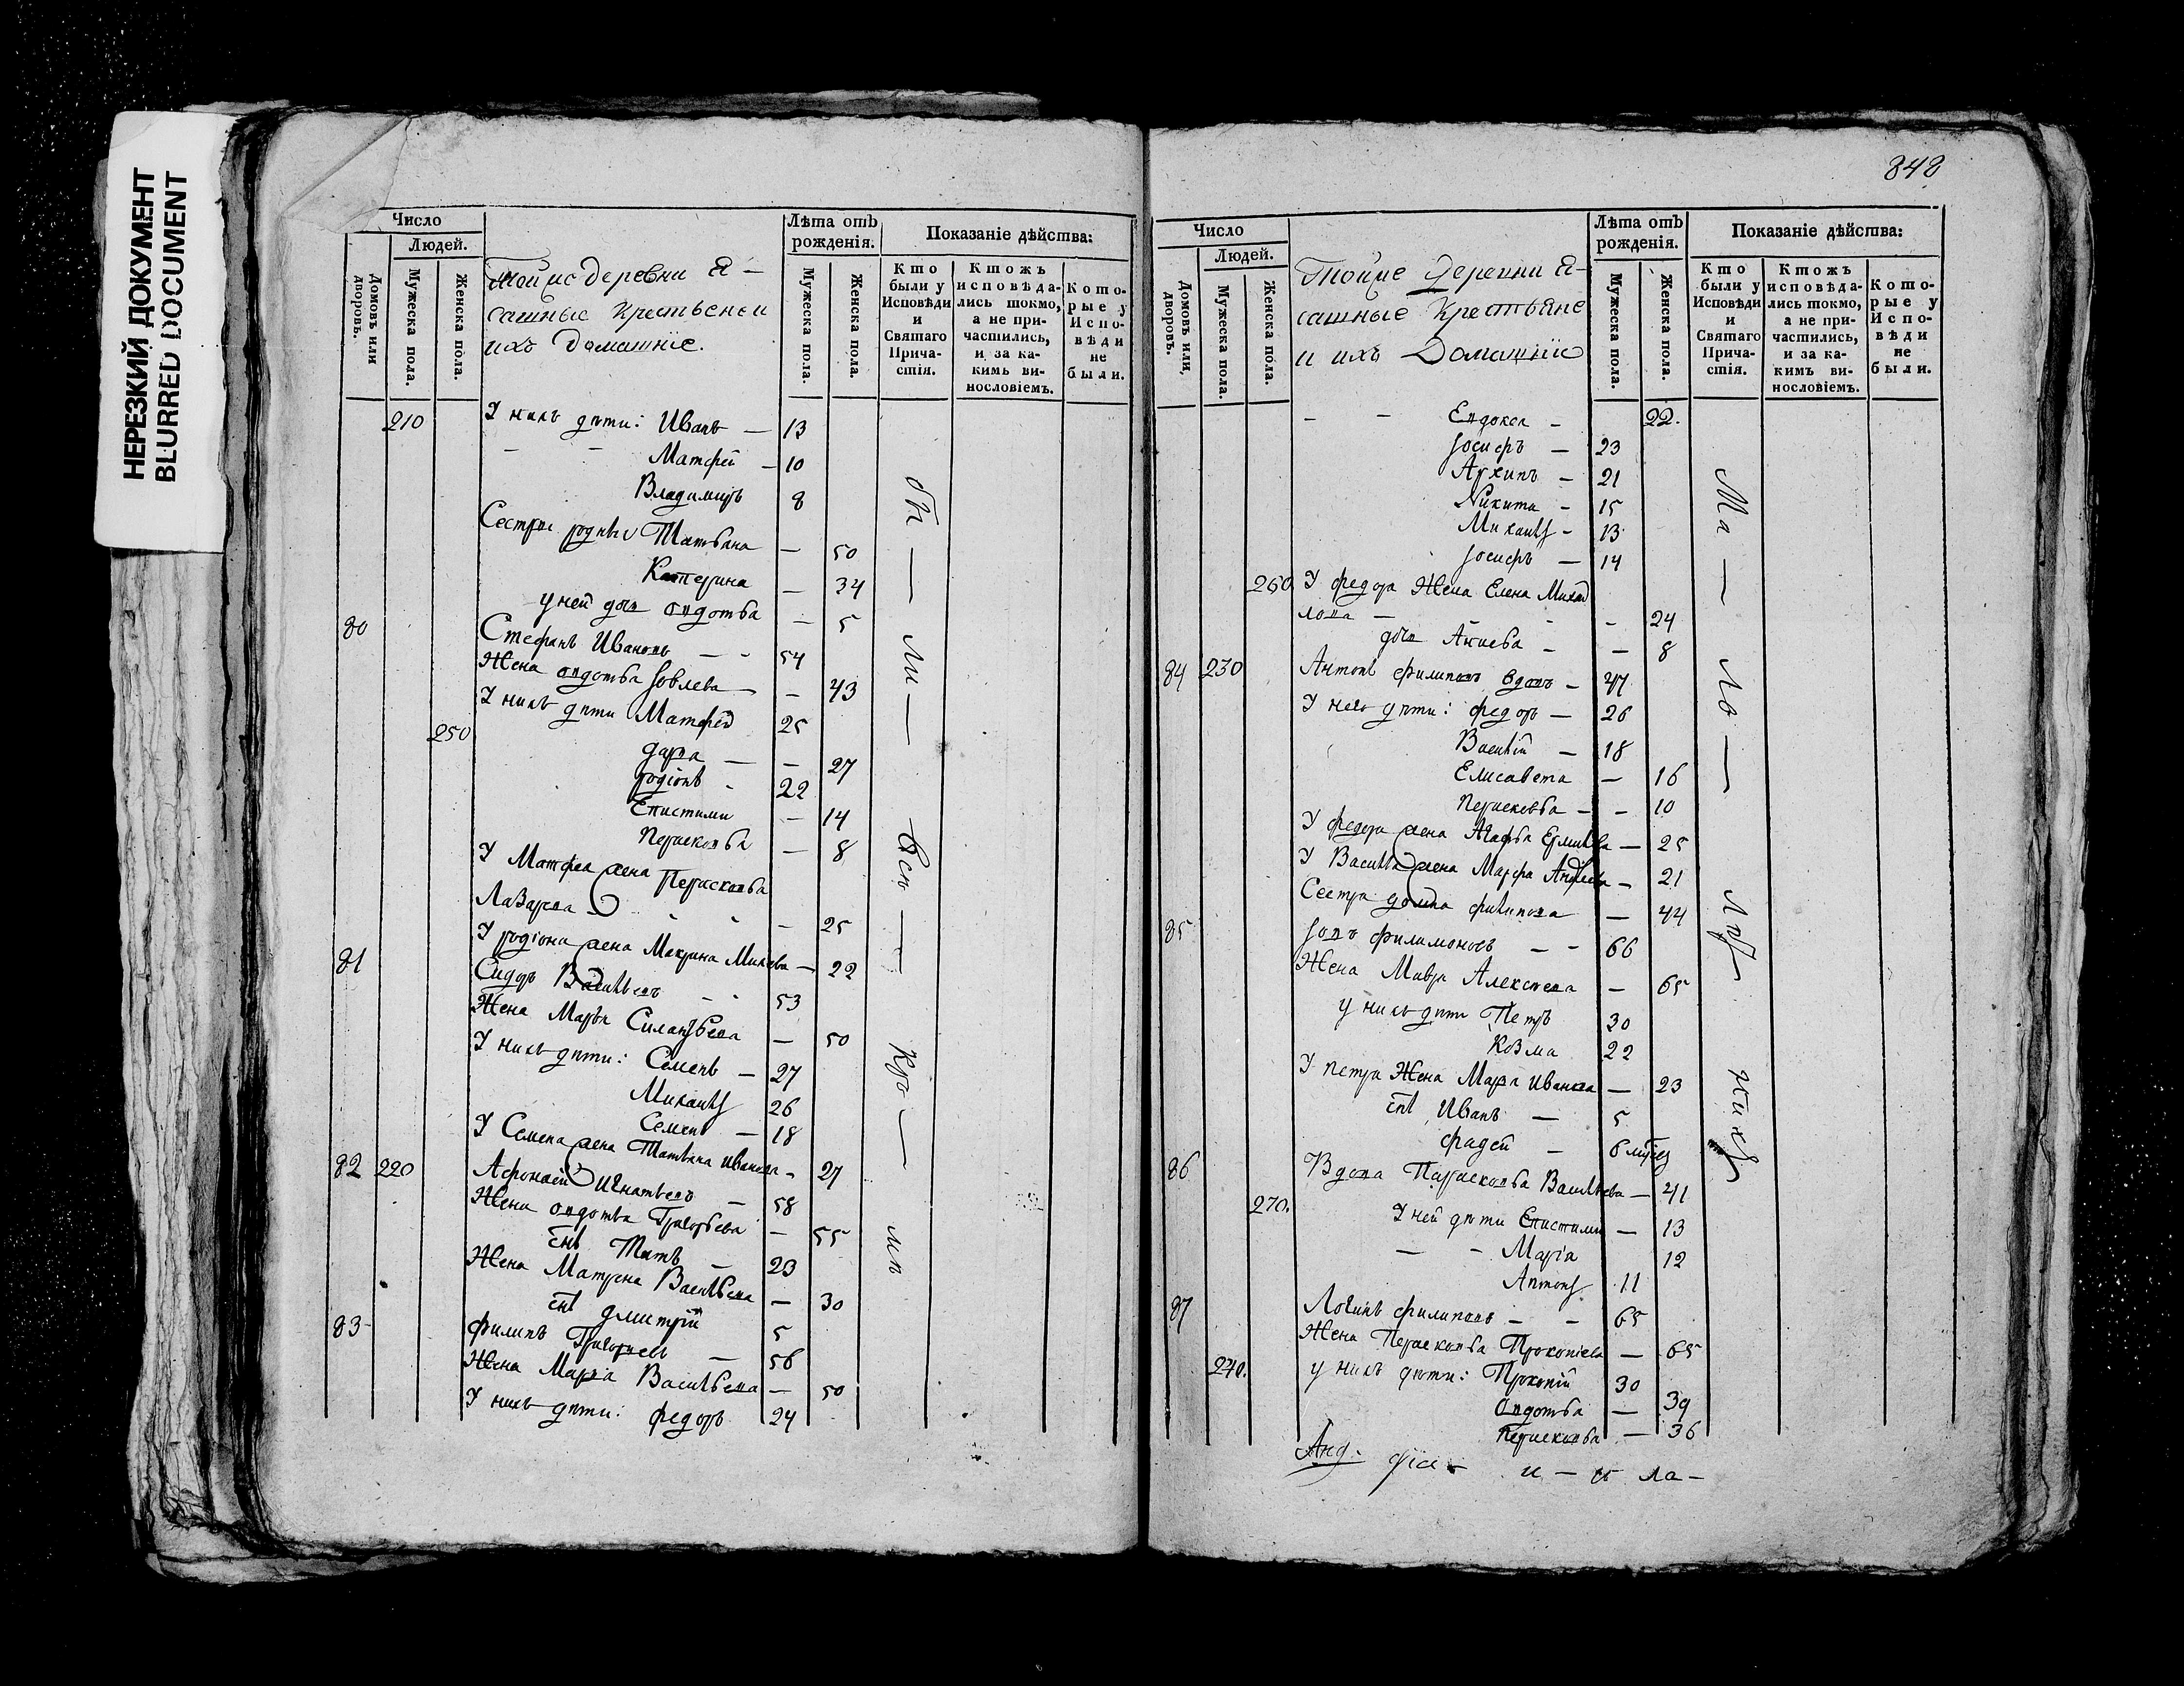 НЕРЕЗКИЙ ДОКУМЕНТ
BLURRED DOCUMENT
Число
Людей.
Домовъ или дворовъ.
Мужеска пола.
Женска пола.
Тойже деревни Я-
сашные крестьяне и
ихъ домашніе.
Лѣта отъ рожденія.
Мужеска пола.
Женска пола.
Показаніе дѣйства:
Кто были у Исповѣди и Святаго Причастія.
Ктожъ исповѣдались токмо, а не причастились, и за какимъ винословіемъ.
Которые у Исповѣди не были.
210 У нихъ дѣти: Иванъ — 13
- - Матфей — 10
Владимиръ 8
Сестры родные Татьяна — 50
Катерина — 34
у ней дочь Овдотья — 5
80 Стефанъ Ивановъ — - 54
Жена Овдотья Іовлева — - 43
У нихъ дѣти Матфей 25
250 Дарья — - 27
Родіонъ - 22
Епистимия - 14
Парасковья — 8
У Матфея жена Парасковья
Лазарева - - - 25
У Родіона жена Макрина — 22
81 Сидоръ Васильевъ - - 53
Жена Марья Силантьева — 50
У нихъ дѣти: Семенъ — 27
Михаилъ 26
Семенъ — 18
У Семена жена Татьяна Иванова - 27
82 220 Афонасей Игнатьевъ — 58
Жена Овдотья Григорьева — 55
сынъ Титъ — 23
Жена Матрена Васильева — 30
сынъ Дмитрій 5
83 Филипъ Григорьевъ — 56
Жена Марья Васильева — 50
У нихъ дѣти: Федоръ 24
бы — ли — всѣ — Кро — мѣ
848
Число
Людей.
Домовъ или дворовъ.
Мужеска пола.
Женска пола.
Тойже деревни Я-
сашные крестьяне
и ихъ домашніе
Лѣта отъ рожденія.
Мужеска пола.
Женска пола.
Показаніе дѣйства:
Кто были у Исповѣди и Святаго Причастія.
Ктожъ исповѣдались токмо, а не причастились, и за какимъ винословіемъ.
Которые у Исповѣди не были.
- - 22.
Іосифъ — 23
Архипъ - 21
Никита - 15
Михаилъ - 13
Іосифъ — 14
260 У Федора жена Елена Михай
лова — - - 24
дочь - — 8
84 230 Антонъ Филиповъ вдовъ - 47
У него дѣти: Федоръ — 26
Василій — 18
Елисавета — 16
Парасковья — - 10
У Федора жена Агафья — 25
У Василья жена Марфа — 21
Сестра Филипова — 44
85 Іовъ Филимоновъ — - 66
Жена Мавра Алексѣева — 65
у нихъ дѣти Петръ 30
Козма 22
У Петра жена Марья Иванова — 23
сынъ Иванъ — 5
Фадей — 6
86 Вдова Парасковья Васильева — 41
270. У ней дѣти Епистимия — 13
— - Марія 12
Антонъ 11
87 Логинъ Филиповъ - - 65
Жена Парасковья Прокопіева — 65
240. у нихъ дѣти: Прокопій 30
Овдотья — 39
Парасковья — 36
Ма — ло — лѣт нихъ